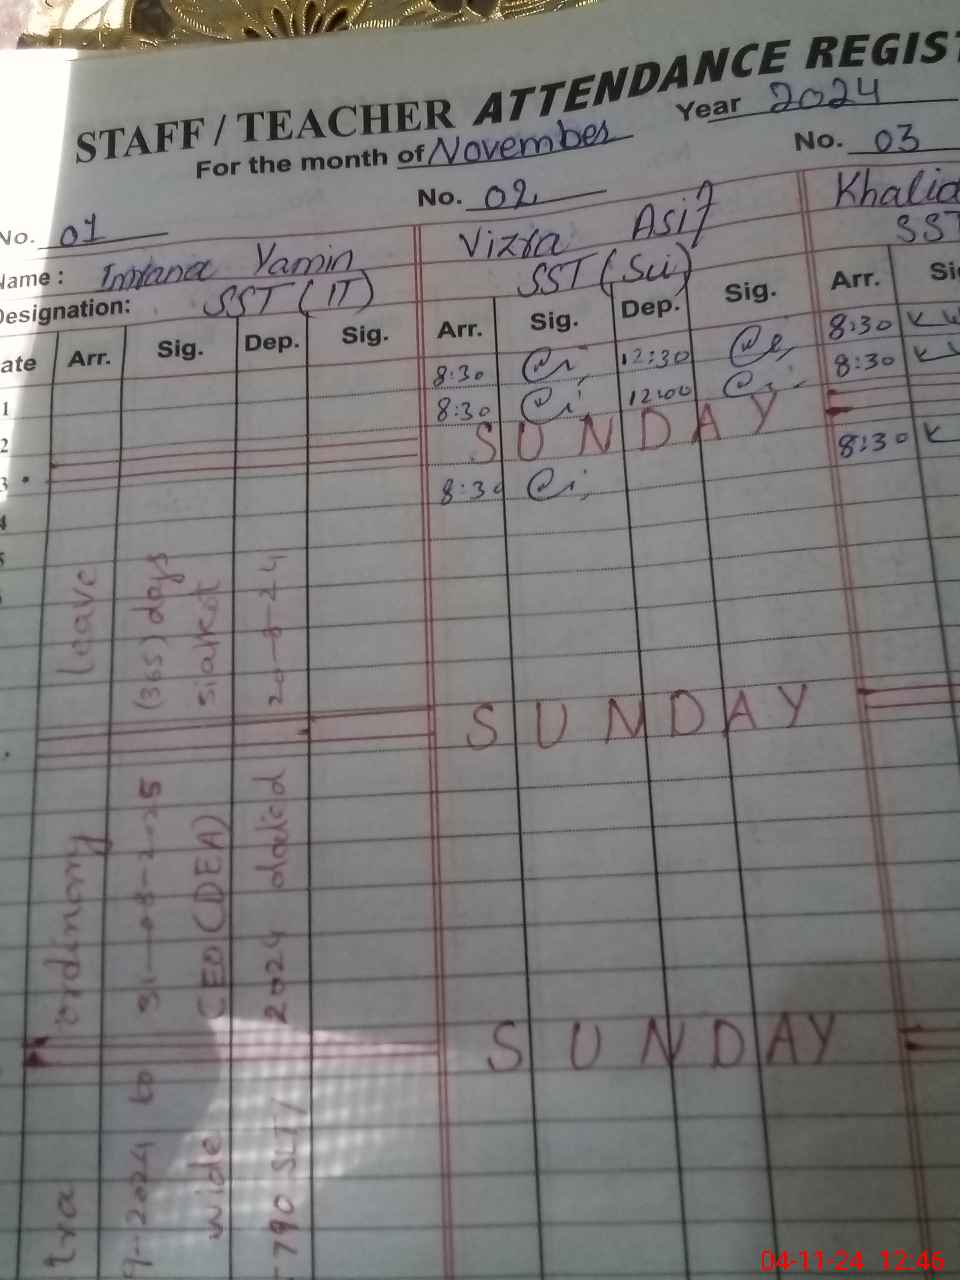 STAFF / TEACHER ATTENDANCE REGIST
For the month of November Year 2024
No. 01 No. 02 No. 03
Name: Imrana Yamin Vizra Asif Khalid
Designation: SST (IT) SST (Sci) SST
ate Arr. Sig. Dep. Sig. Arr. Sig. Dep. Sig. Arr. Si
1 8:30 12:30 8:30
2 8:30 12:00 8:30
3 SUNDAY
4 8:30 8:30
5
SUNDAY
SUNDAY
tra ordinary leave
9-2024 to 31-08-2025 (365) days
wide CEO (DEA) sialkot
-790 SLT/ 2024 dated 20-8-24
04-11-24 12:46